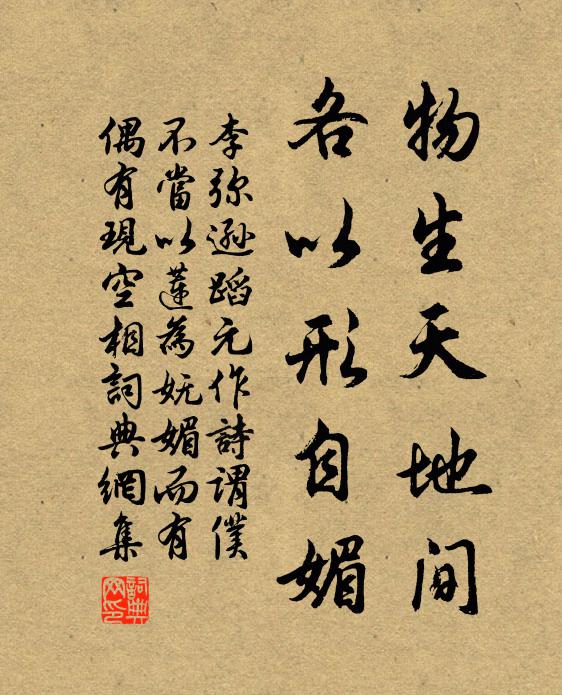 物生天地间
各以形自媚
李弥逊蹈元作詩謂僕
不當以蓮為妩媚而有
偶有現空相詞典網集
詞典
网印